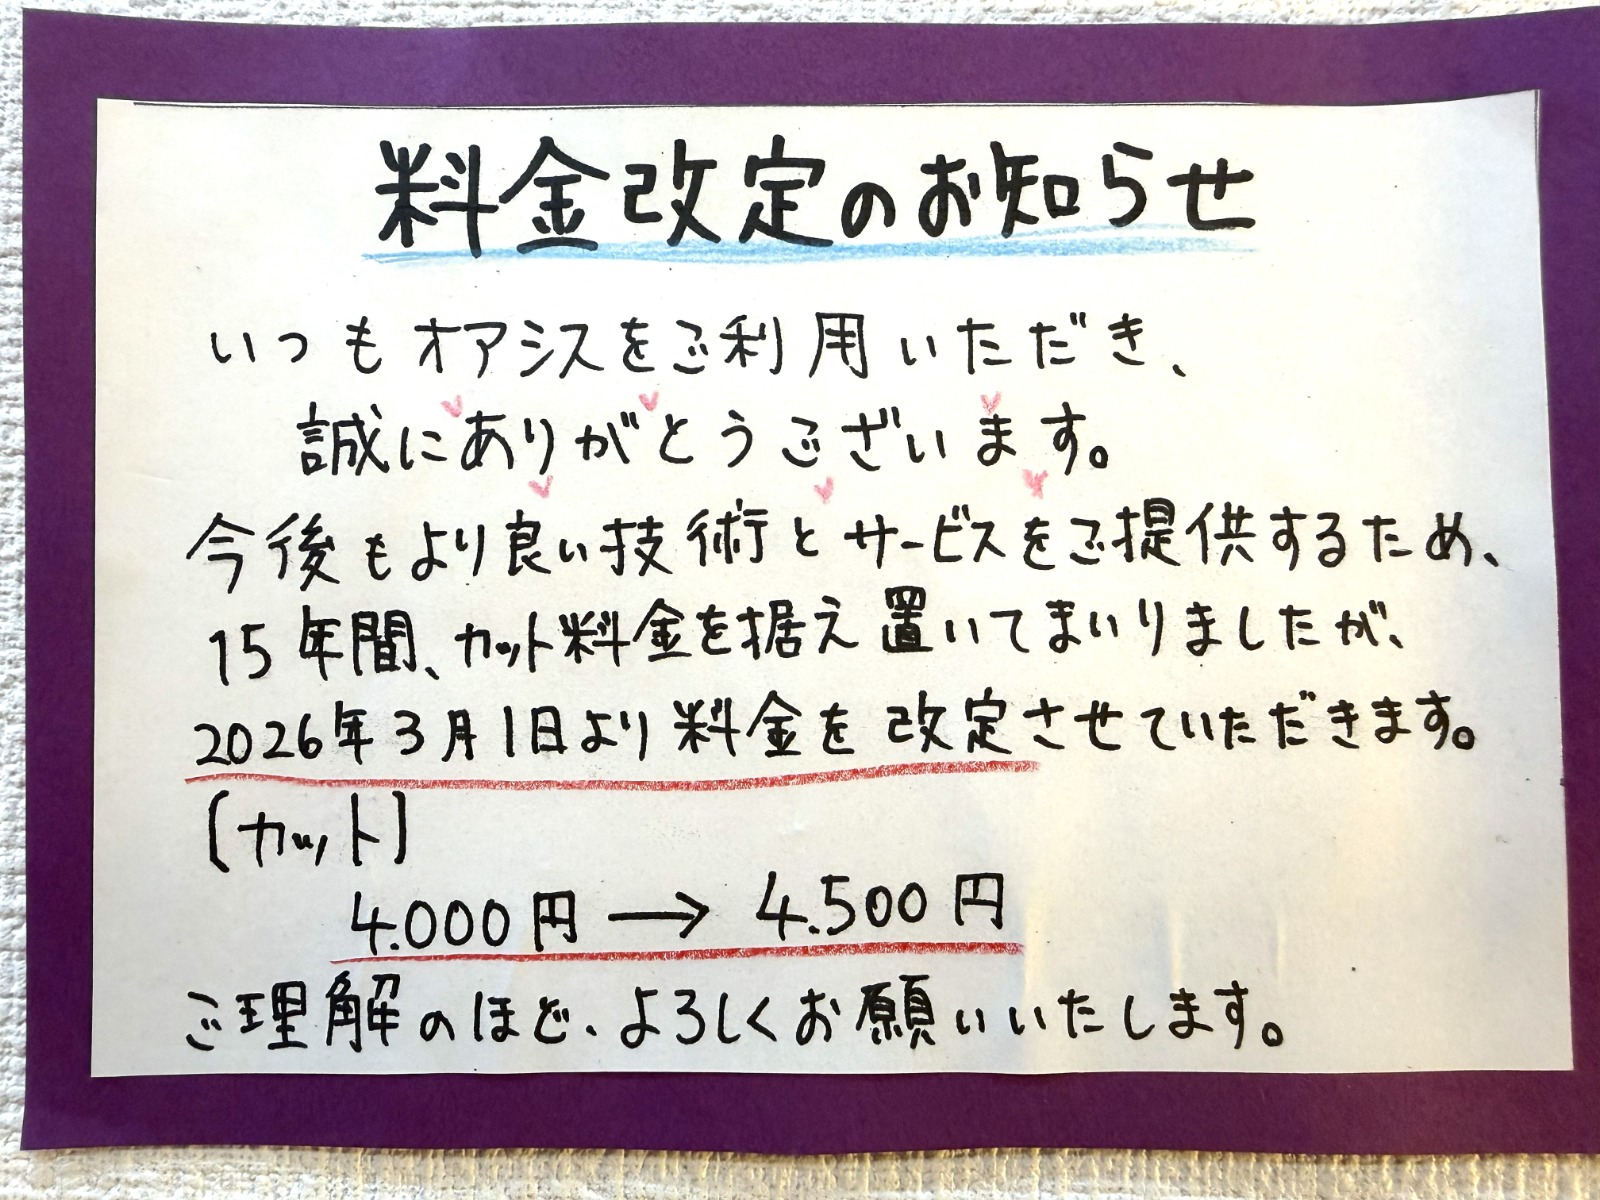 料金改定のお知らせ
いつもオアシスをご利用いただき、
誠にありがとうございます。
今後もより良い技術とサービスをご提供するため、
15年間、カット料金を据え置いてまいりましたが、
2026年3月1日より料金を改定させていただきます。
〔カット〕
4.000円→4.500円
ご理解のほど、よろしくお願いいたします。